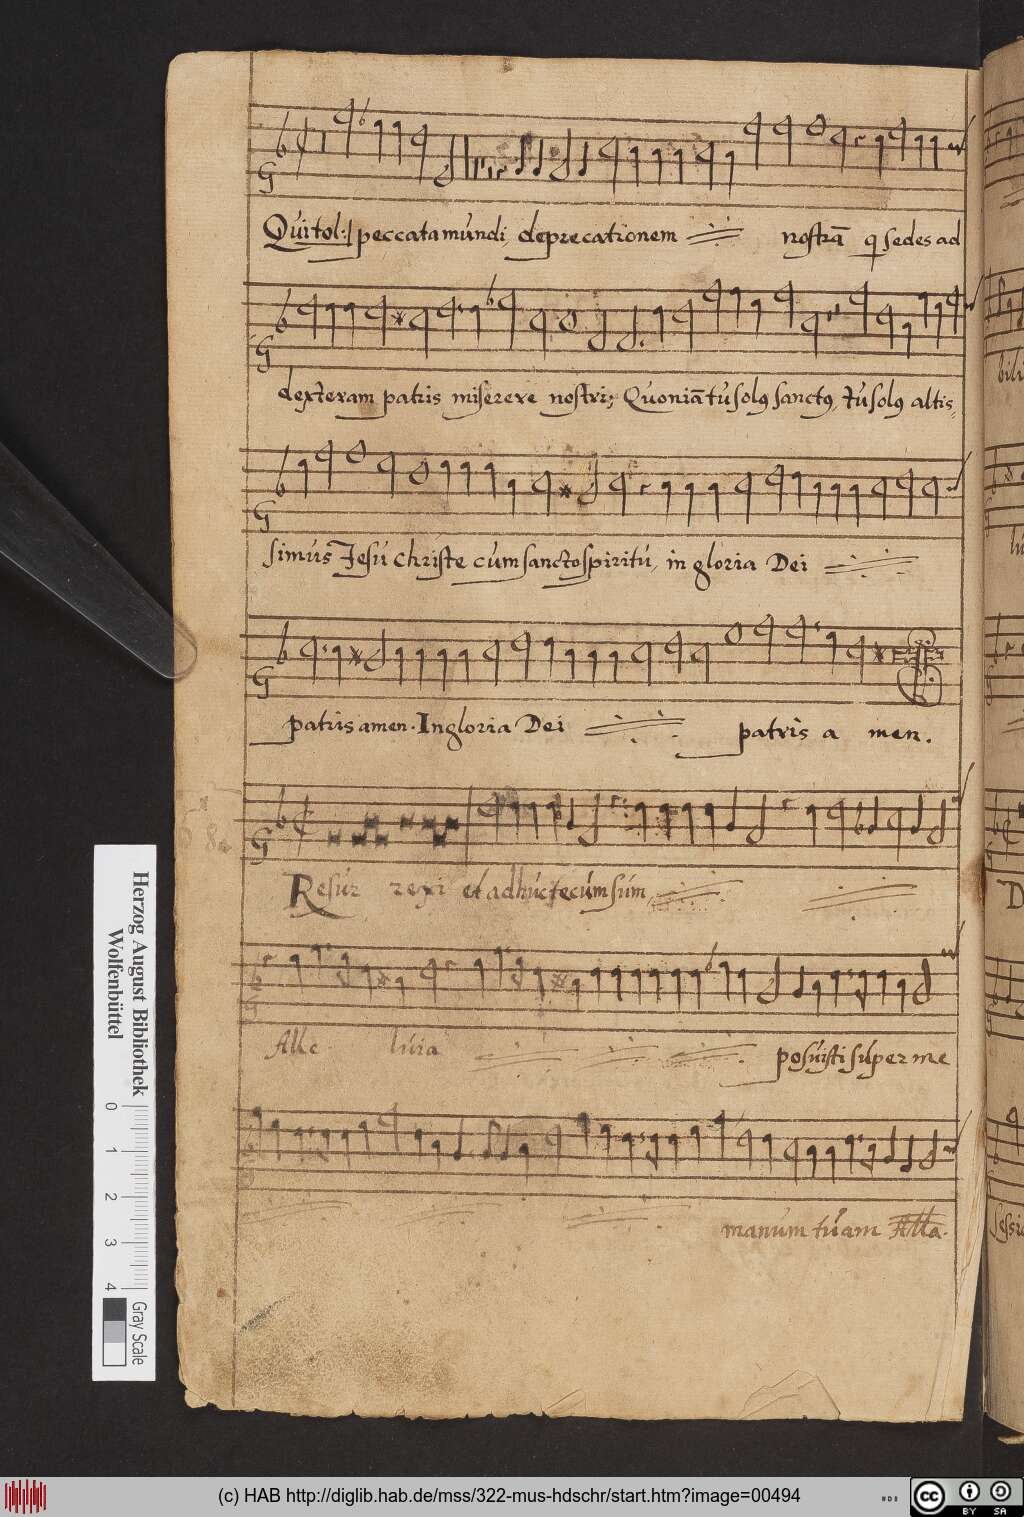 Qui tol: peccata mundi, deprecationem nostrā q sedes ad
dexteram patris miserere nostri; Quoniā tu solꝰ sanctꝰ, tu solꝰ altis=
simus Jesu christe cum sancto spiritu, in gloria Dei
patris amen. In gloria Dei patris a men.
Resur rexi et adhuc tecum sum,
Alle luia posuisti super me
manum tuam Alla.
Herzog August Bibliothek
Wolfenbüttel
0 1 2 3 4
Gray Scale
(c) HAB http://diglib.hab.de/mss/322-mus-hdschr/start.htm?image=00494
cc BY SA